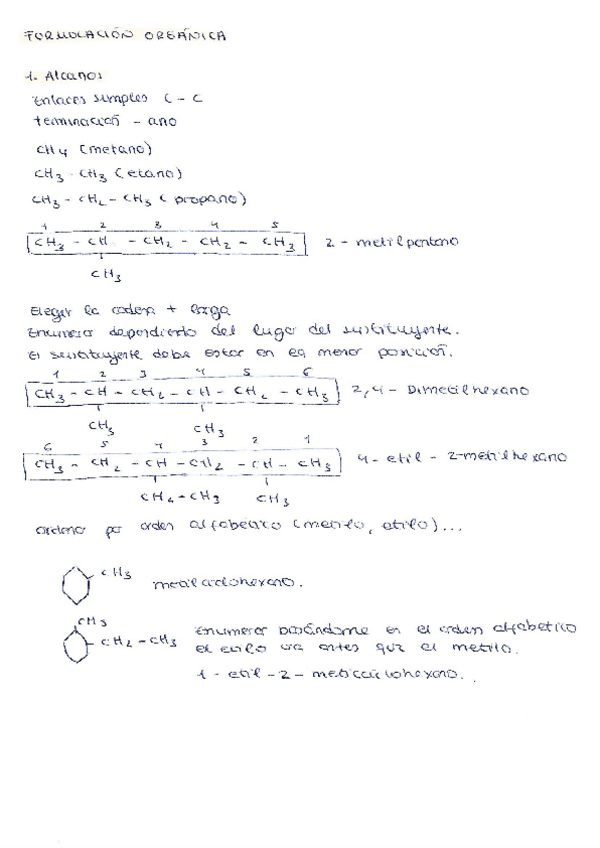 FORMULACIÓN ORGÁNICA
1. Alcanos
Enlaces simples C - C
terminación - ano
CH4 (metano)
CH3 - CH3 (etano)
CH3 - CH2 - CH3 (propano)
1 2 3 4 5
CH3 - CH - CH2 - CH2 - CH3 2 - metilpentano
CH3
Elegir la cadena + larga
Enumerar dependiendo del lugar del sustituyente.
El sustituyente debe estar en la menor posición.
1 2 3 4 5 6
CH3 - CH - CH2 - CH - CH2 - CH3 2,4 - Dimetilhexano
CH3 CH3
6 5 4 3 2 1
CH3 - CH2 - CH - CH2 - CH - CH3 4 - etil - 2 - metilhexano
CH2 - CH3 CH3
ordeno por orden alfabético (metilo, etilo)...
CH3 metilciclohexano.
CH3
CH2 - CH3 Enumerar basándome en el orden alfabético
el etilo va antes que el metilo.
1 - etil - 2 - metilciclohexano.